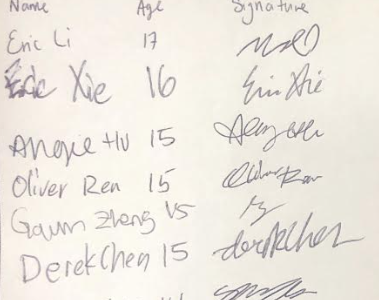 Name Age Signature
Eric Li 17
Eric Xie 16 Eric Xie
Angie Hu 15
Oliver Ren 15 Oliver Ren
Gavin Zheng 15
Derek Chen 15 derekchen